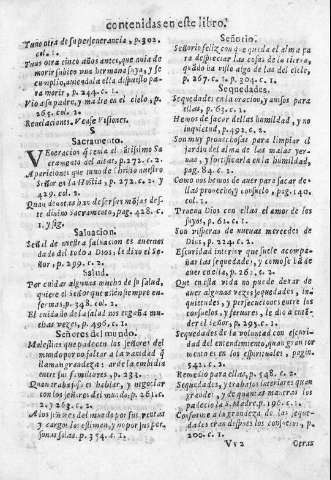 contenidas en este libro.
Tuuo otra de su perseuerancia, p. 302.
col. 1.
Tuuo otra cinco años antes, que auia de
morir subito vna hermana suya, y se
cumplio, auiendola dispuesto pa
ra morir, p. 244. c. 1.
Vio a su padre, y madre en el cielo, p.
265. col. 2.
Reuelaciones. Vease Visiones.
S
Sacramento.
VEneracion que tenia el Santissimo Sa
cramento del altar, p. 272. c. 2.
Apariciones que tuuo de Christo nuestro
Señor en la Hostia, p. 272. c. 2. y
429. col. 2.
Quan deuotas han de ser las monjas des-
te diuino Sacramento, pag. 428. c.
1. y sig.
Saluacion.
Señal de nuestra saluacion es auernos
dado del todo a Dios, le dixo el Se-
ñor, p. 299. c. 2.
Salud.
Por cuidar algunos mucho de su salud,
quiere el Señor que viuan siempre en-
fermos, p. 348. col. 2.
El cuidado de la salud nos engaña mu-
chas vezes, p. 496. c. 1.
Señores del mundo.
Molestias que padecen los señores del
mundo por no faltar a la vanidad q̃
llaman grandeza: arde la embidia
entre sus familiares, p. 231.
Quan trabajoso es habitar, y negociar
con los señores del mundo. p. 261. c.
2. y 263. c. 2.
A los señores del mundo por sus rentas
y cargos los estiman, y no por per-
sonas solas. p. 354. c. 1.
Señorio.
Señorio feliz con que queda el alma pa
ra despreciar las cosas de la tierra,
quãdo ha visto algo de las del cielo,
p. 267. c. 1. p. 304. c. 1.
Sequedades.
Sequedades en la oracion, y auisos para
ellas, p. 63. c. 2.
Hemos de sacar dellas humildad, y no
inquietud, p. 492. c. 2.
Son muy prouechosas para limpiar el
jardin del alma de las malas yer-
uas, y fortificarla en la humildad,
pag. 84. c. 1.
Como nos hemos de auer para sacar de-
llas prouecho, y consuelo, pag. 140.
col. 1.
Prueua Dios con ellas el amor de los
suyos, p. 61. c. 2.
Son visperas de nueuas mercedes de
Dios, p. 224. c. 2.
Escuridad interior que suele acompa-
ñar las sequedades, y como se ha de
auer con ella, p. 261. c. 2.
Que en esta vida no puede dexar de
auer algunas vezes sequedades, in-
quietudes, y perfecciones entre los
consuelos, y feruores, le dio a enten-
der el Señor, p. 293. c. 1.
Sequedades de la voluntad con escuri-
dad del entendimiento, quan gran tor
mento es en los espirituales, pagin.
542. c. 2.
Remedio para ellas, p. 548. c. 2.
Sequedades, y trabajos interiores quan
grandes, y de quantas maneras los
padecio la S. Madre, p. 196. c. 1.
Conforme a la grandeza de las seque-
dades eran despues los consuelos, p.
200. c. 1.
Vv 2